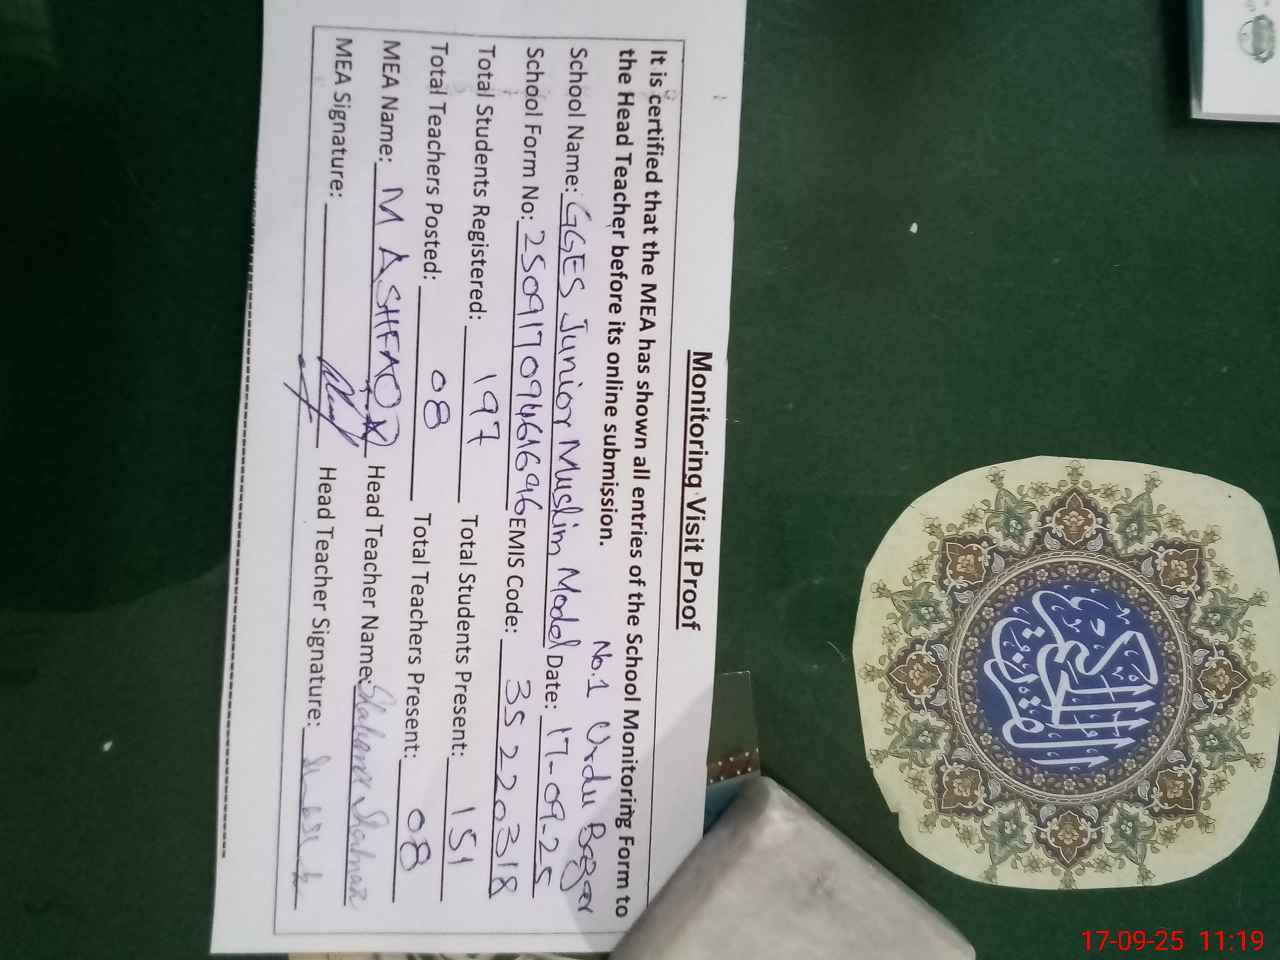 Monitoring Visit Proof
It is certified that the MEA has shown all entries of the School Monitoring Form to
the Head Teacher before its online submission.
No.1 Urdu Bazar
School Name: GGES Junior Muslim Model Date: 17-09-25
School Form No: 25091709461696 EMIS Code: 35220318
Total Students Registered: 197 Total Students Present: 151
Total Teachers Posted: 08 Total Teachers Present: 08
MEA Name: M ASHFAQ Head Teacher Name: Shahnaz
MEA Signature: Head Teacher Signature:
القرآن الحكيم
17-09-25 11:19